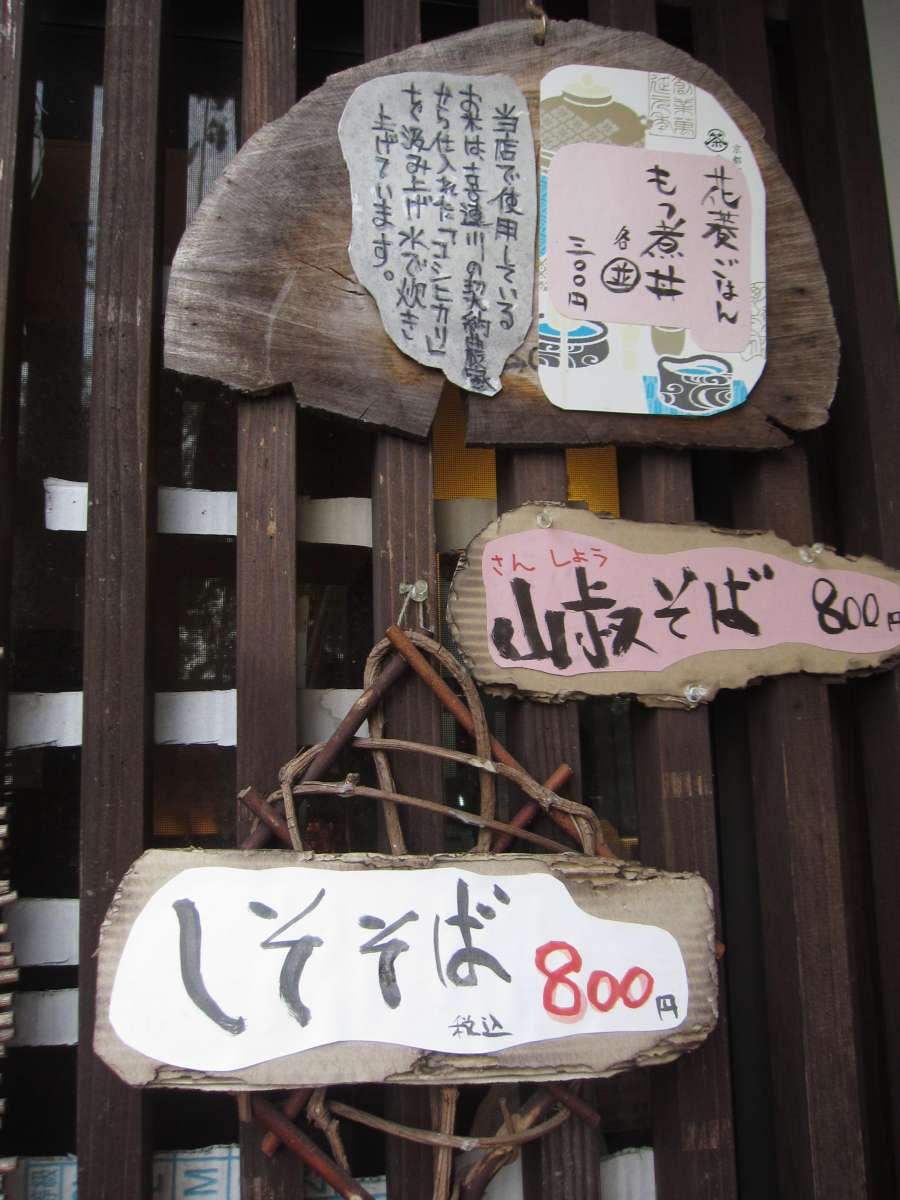 花菱ごはん
もつ煮丼
各並
三〇〇円
京都
茶
当店で使用している
お米は、喜連川の契約農家
から仕入れた「コシヒカリ」
を汲み上げ水で炊き
上げています。
さんしょう
山椒そば 800円
しそそば 800円
税込
M